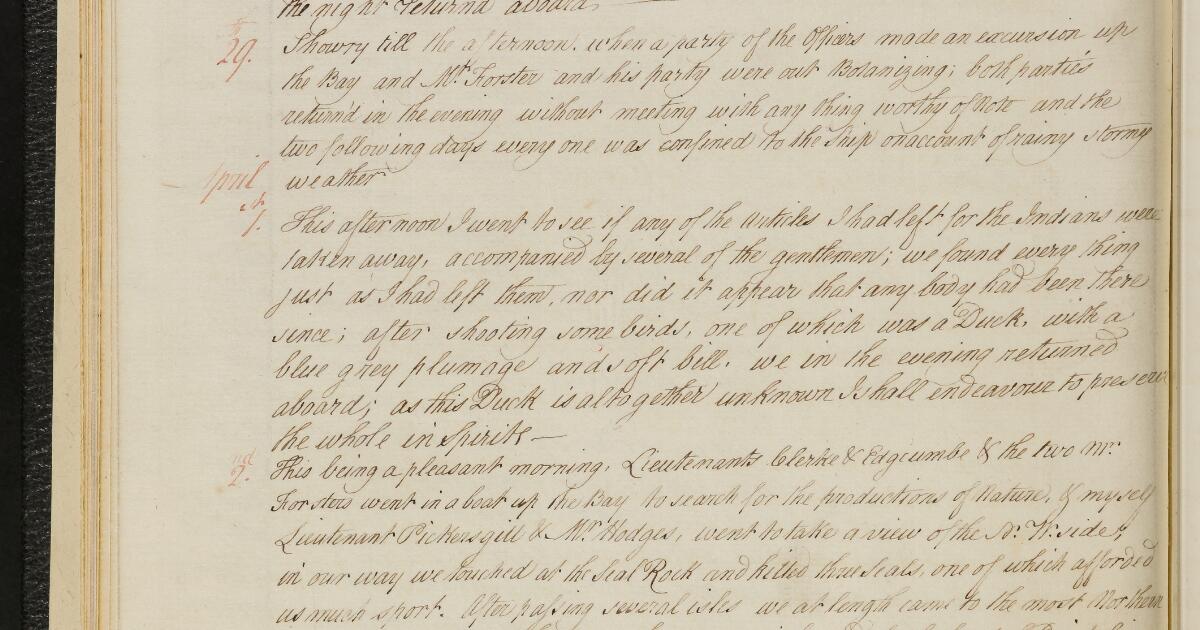 the night returnd aboard,
th
29. Showry till the afternoon. when a party of the Officers made an excursion up
the Bay and Mr. Forster and his party were out Botanizing; both parties
return'd in the evening without meeting with any thing worthy of Note and the
two following days every one was confined to the Ship on account of rainy stormy
April weather
st
1. This afternoon I went to see if any of the articles I had left for the Indians were
taken away, accompanied by several of the gentlemen; we found every thing
just as I had left them, nor did it appear that any body had been there
since; after shooting some birds, one of which was a Duck, with a
blue grey plumage and soft bill. we in the evening returned
aboard; as this Duck is altogether unknown I shall endeavour to preserve
the whole in Spirits —
nd
2. This being a pleasant morning, Lieutenants Clerke & Edgcumbe & the two Mr.
Forsters went in a boat up the Bay to search for the productions of Nature, & myself
Lieutenant Pickersgill & Mr Hodges, went to take a view of the N. W. side,
in our way we touched at the Seal Rock and killed three Seals, one of which afforded
us much sport. After passing several isles we at length came to the most Northern